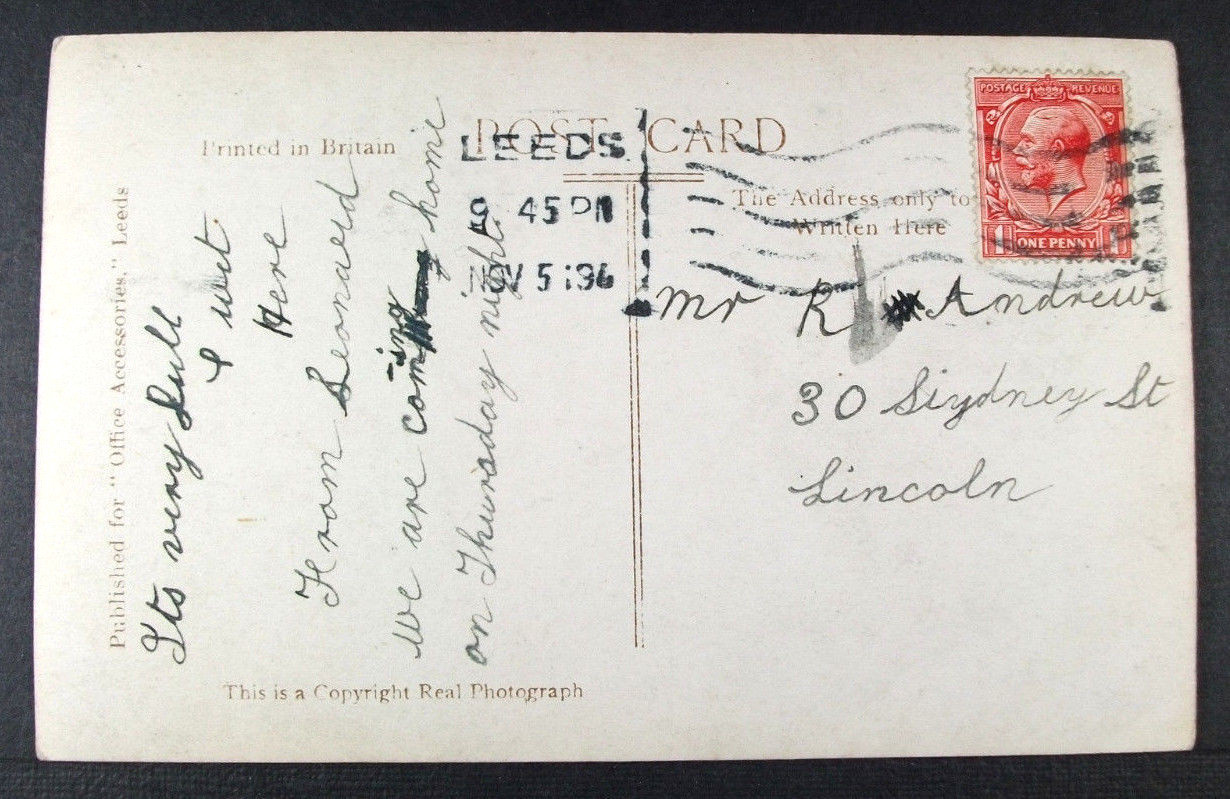 POST CARD
Printed in Britain
LEEDS
9 45 PM
5
The Address only to
Written Here
POSTAGE REVENUE
1 ONE PENNY 1
Mr R Andrew
30 Siydney St
Lincoln
Its very dull
& wet.
Here
From Leonard
we are coming home
on Thursday night.
Published for "Office Accessories," Leeds
This is a Copyright Real Photograph